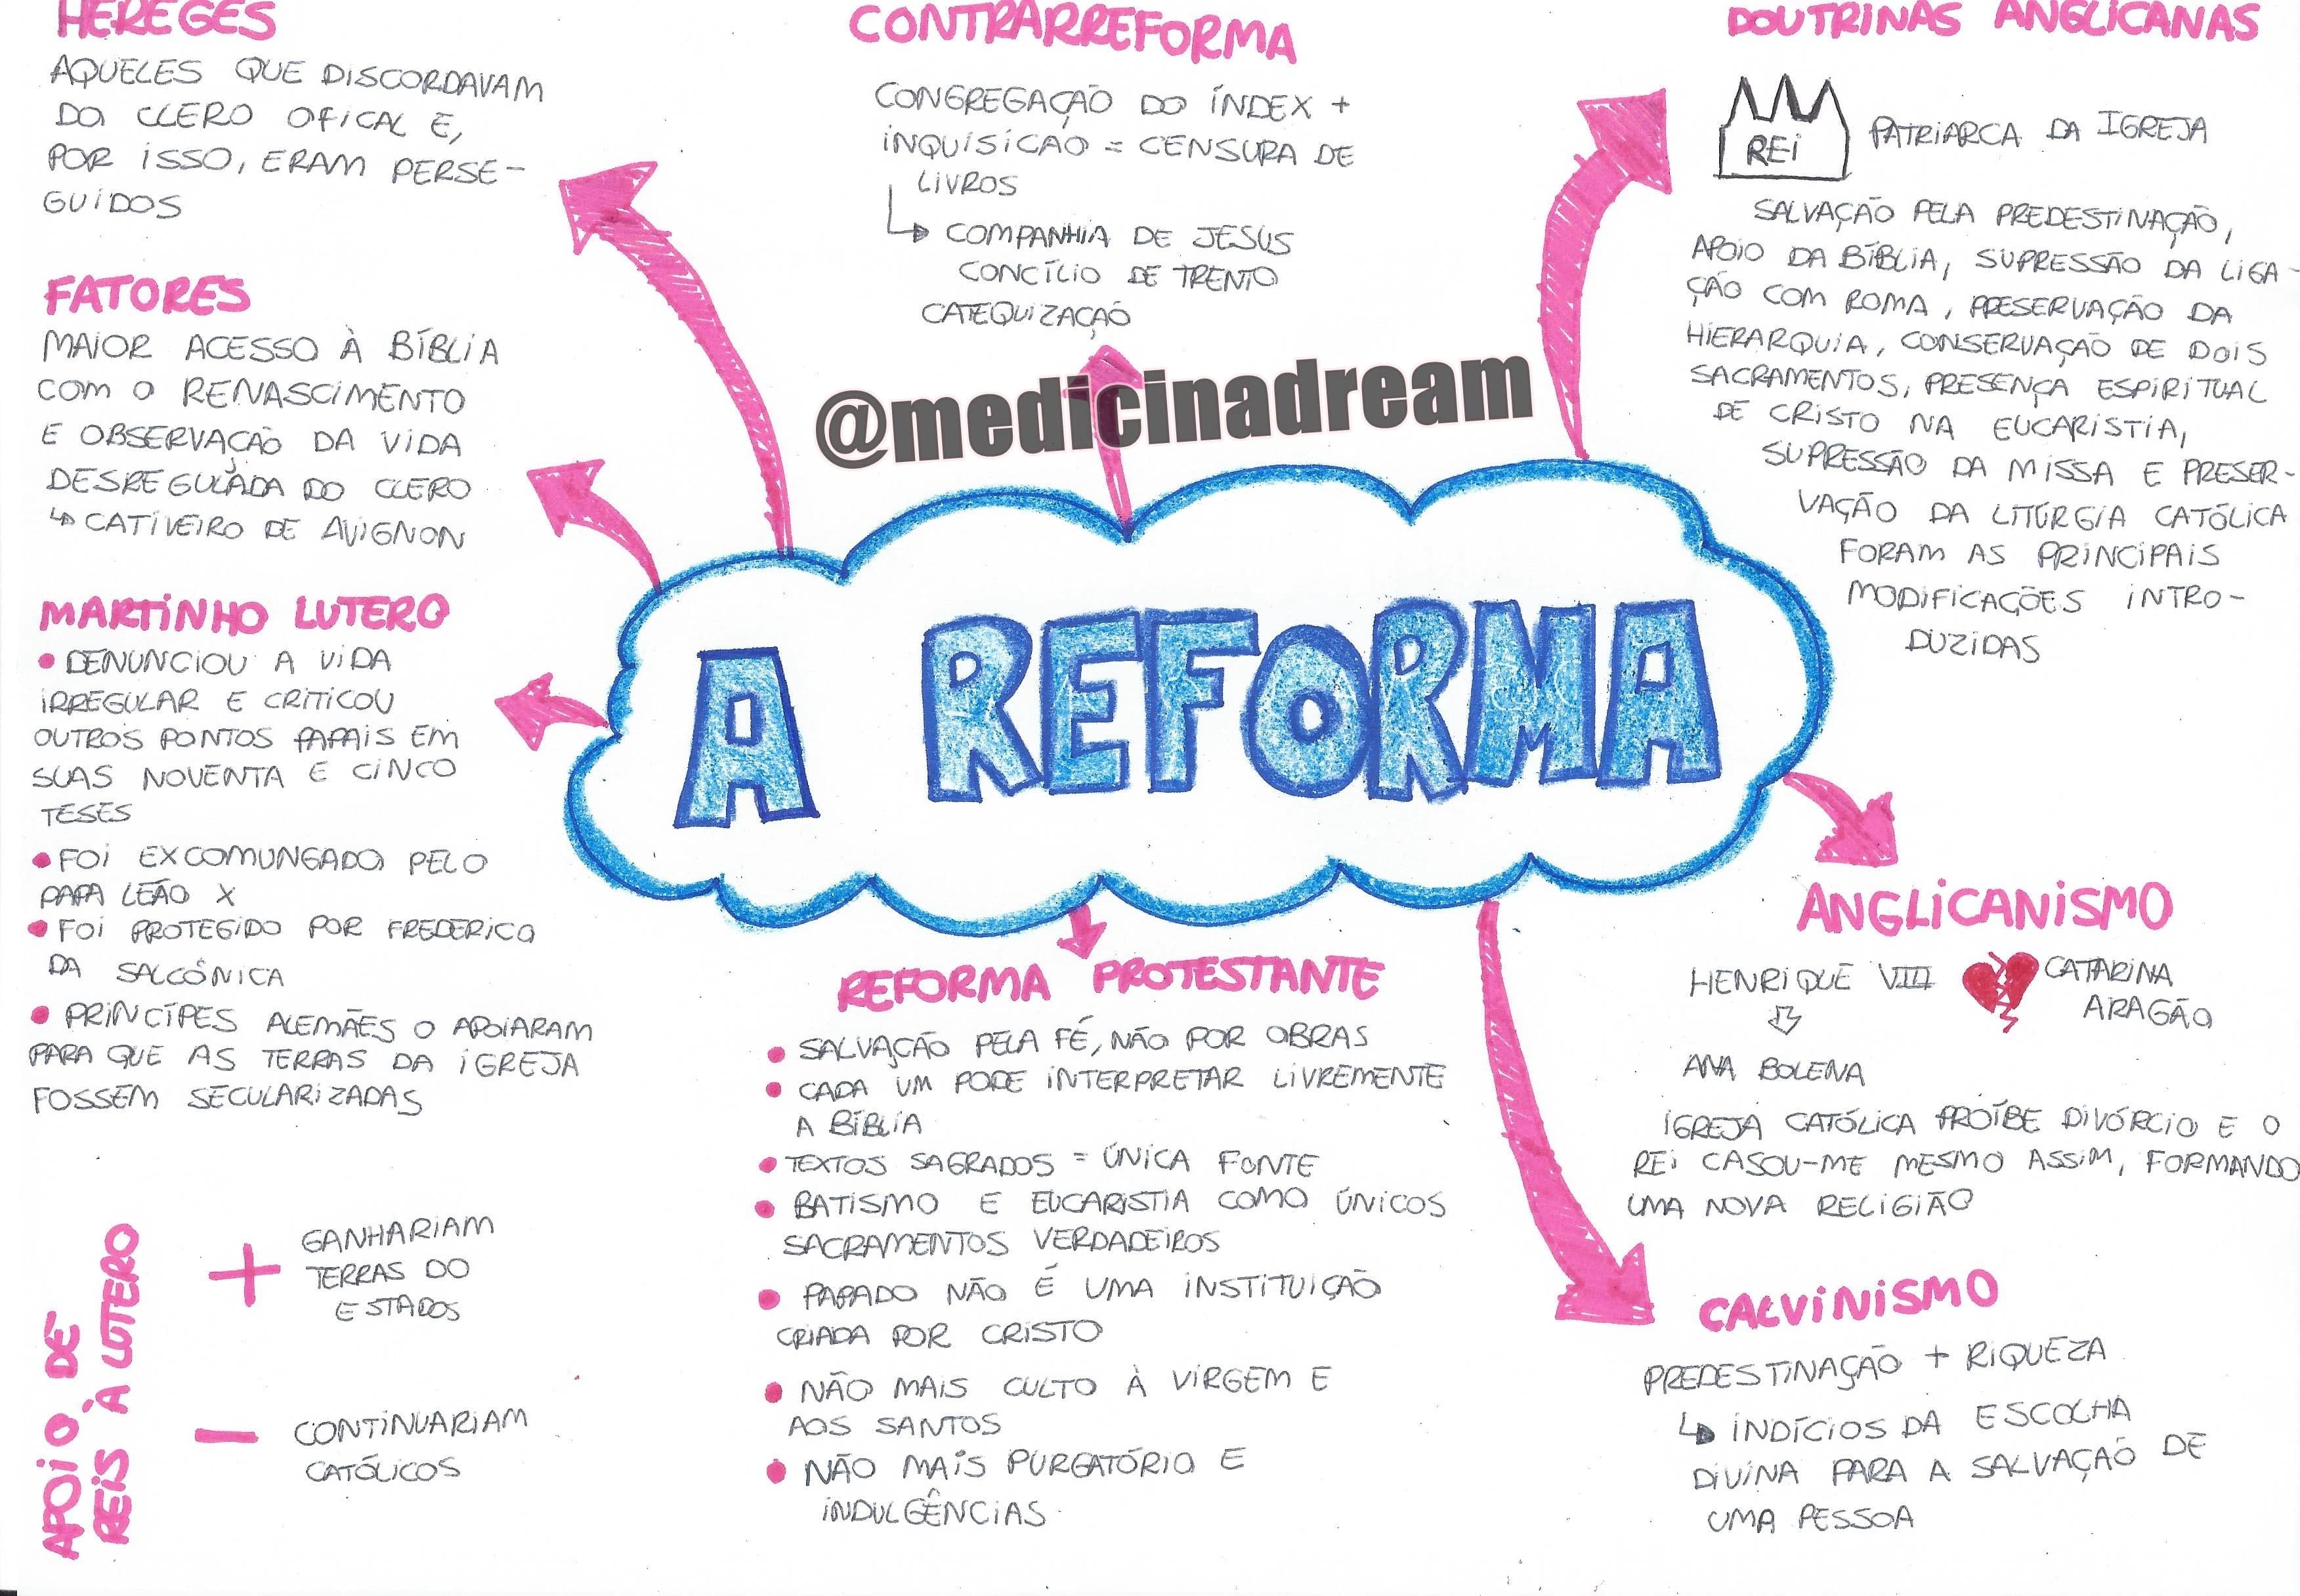 HEREGES
AQUELES QUE DISCORDAVAM
DO CLERO OFICAL E,
POR ISSO, ERAM PERSE-
GUIDOS
FATORES
MAIOR ACESSO À BÍBLIA
COM O RENASCIMENTO
E OBSERVAÇÃO DA VIDA
DESREGULADA DO CLERO
↳ CATIVEIRO DE AVIGNON
MARTINHO LUTERO
• DENUNCIOU A VIDA
IRREGULAR E CRITICOU
OUTROS PONTOS PAPAIS EM
SUAS NOVENTA E CINCO
TESES
• FOI EXCOMUNGADO PELO
PAPA LEÃO X
• FOI PROTEGIDO POR FREDERICO
DA SALCÔNICA
• PRINCÍPES ALEMÃES O APOIARAM
PARA QUE AS TERRAS DA IGREJA
FOSSEM SECULARIZADAS
APOIO DE
REIS À LUTERO
+ GANHARIAM
TERRAS DO
ESTADOS
- CONTINUARIAM
CATÓLICOS
CONTRARREFORMA
CONGREGAÇÃO DO ÍNDEX +
INQUISICÃO = CENSURA DE
LIVROS
↳ COMPANHIA DE JESUS
CONCÍLIO DE TRENTO
CATEQUIZAÇÃO
@medicinadream
A REFORMA
REFORMA PROTESTANTE
• SALVAÇÃO PELA FÉ, NÃO POR OBRAS
• CADA UM PODE INTERPRETAR LIVREMENTE
A BÍBLIA
• TEXTOS SAGRADOS = ÚNICA FONTE
• BATISMO E EUCARISTIA COMO ÚNICOS
SACRAMENTOS VERDADEIROS
• PAPADO NÃO É UMA INSTITUIÇÃO
CRIADA POR CRISTO
• NÃO MAIS CULTO À VIRGEM E
AOS SANTOS
• NÃO MAIS PURGATÓRIO E
INDULGÊNCIAS
DOUTRINAS ANGLICANAS
REI PATRIARCA DA IGREJA
SALVAÇÃO PELA PREDESTINAÇÃO,
APOIO DA BÍBLIA, SUPRESSÃO DA LIGA-
ÇÃO COM ROMA, PRESERVAÇÃO DA
HIERARQUIA, CONSERVAÇÃO DE DOIS
SACRAMENTOS, PRESENÇA ESPIRITUAL
DE CRISTO NA EUCARISTIA,
SUPRESSÃO DA MISSA E PRESER-
VAÇÃO DA LITÚRGIA CATÓLICA
FORAM AS PRINCIPAIS
MODIFICAÇÕES INTRO-
DUZIDAS
ANGLICANISMO
HENRIQUE VIII CATARINA
ARAGÃO
ANA BOLENA
IGREJA CATÓLICA PROÍBE DIVÓRCIO E O
REI CASOU-ME MESMO ASSIM, FORMANDO
UMA NOVA RELIGIÃO
CALVINISMO
PREDESTINAÇÃO + RIQUEZA
↳ INDÍCIOS DA ESCOLHA
DIVINA PARA A SALVAÇÃO DE
UMA PESSOA